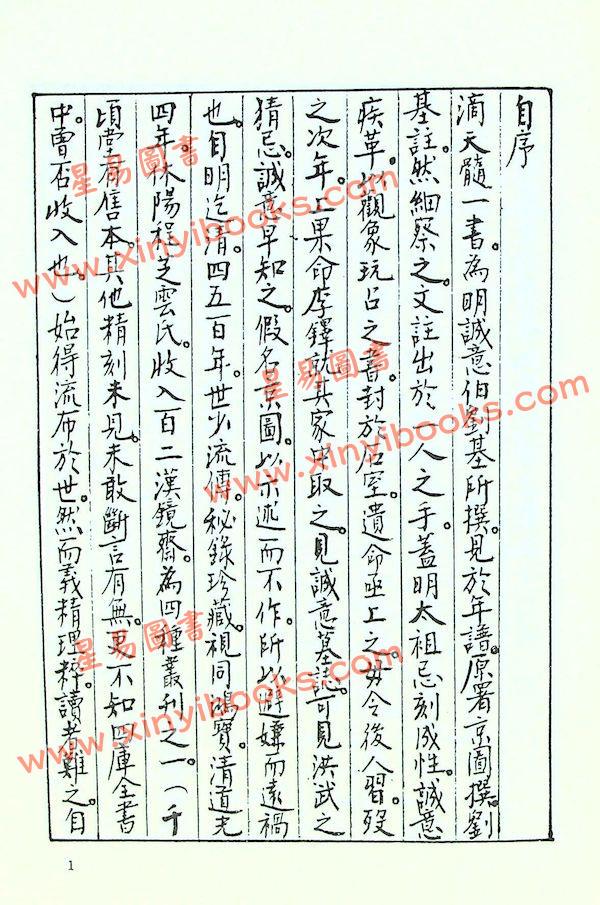 自序
滴天髓一書。為明誠意伯劉基所撰。見於年譜。原署京圖撰。劉
基註。然細察之。文註出於一人之手。蓋明太祖忌刻成性。誠意
疾革。以觀象玩占之書。封於石室。遺命亟上之。毋令後人習。歿
之次年。上果命李鐸就其家中取之。見誠意墓誌。可見洪武之
猜忌。誠意早知之。假名京圖。以示述而不作。所以避嫌而遠禍
也。自明迄清。四五百年。世少流傳。秘錄珍藏。視同鴻寶。清道光
四年。休陽程芝雲氏。收入百二漢鏡齋。為四種叢刊之一。(千
頃堂有售本。其他精刻未見。未敢斷言有無。更不知四庫全書
中。曾否收入也。)始得流布於世。然而義精理粹。讀者難之。自
1
星易圖書
www.xinyibooks.com
星易圖書
www.xinyibooks.com
星易圖書
www.xinyibooks.com